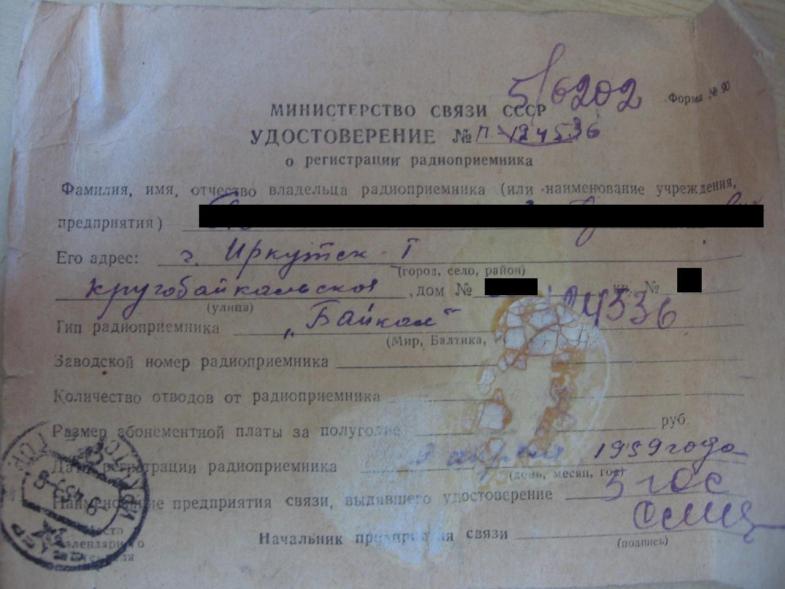 5/6202
Форма № 90
МИНИСТЕРСТВО СВЯЗИ СССР
УДОСТОВЕРЕНИЕ № П-124536
о регистрации радиоприемника
Фамилия, имя, отчество владельца радиоприемника (или наименование учреждения,
предприятия)
Его адрес: г. Иркутск-I
(город, село, район)
Кругобайкальская, дом № кв. №
(улица)
124536
Тип радиоприемника „Байкал"
(Мир, Балтика,
Заводской номер радиоприемника
Количество отводов от радиоприемника
Размер абонементной платы за полугодие руб.
Дата регистрации радиоприемника 9 апреля 1959 года
(день, месяц, год)
Наименование предприятия связи, выдавшего удостоверение 5 гос
Место
календарного
штемпеля
Начальник предприятия связи
(подпись)